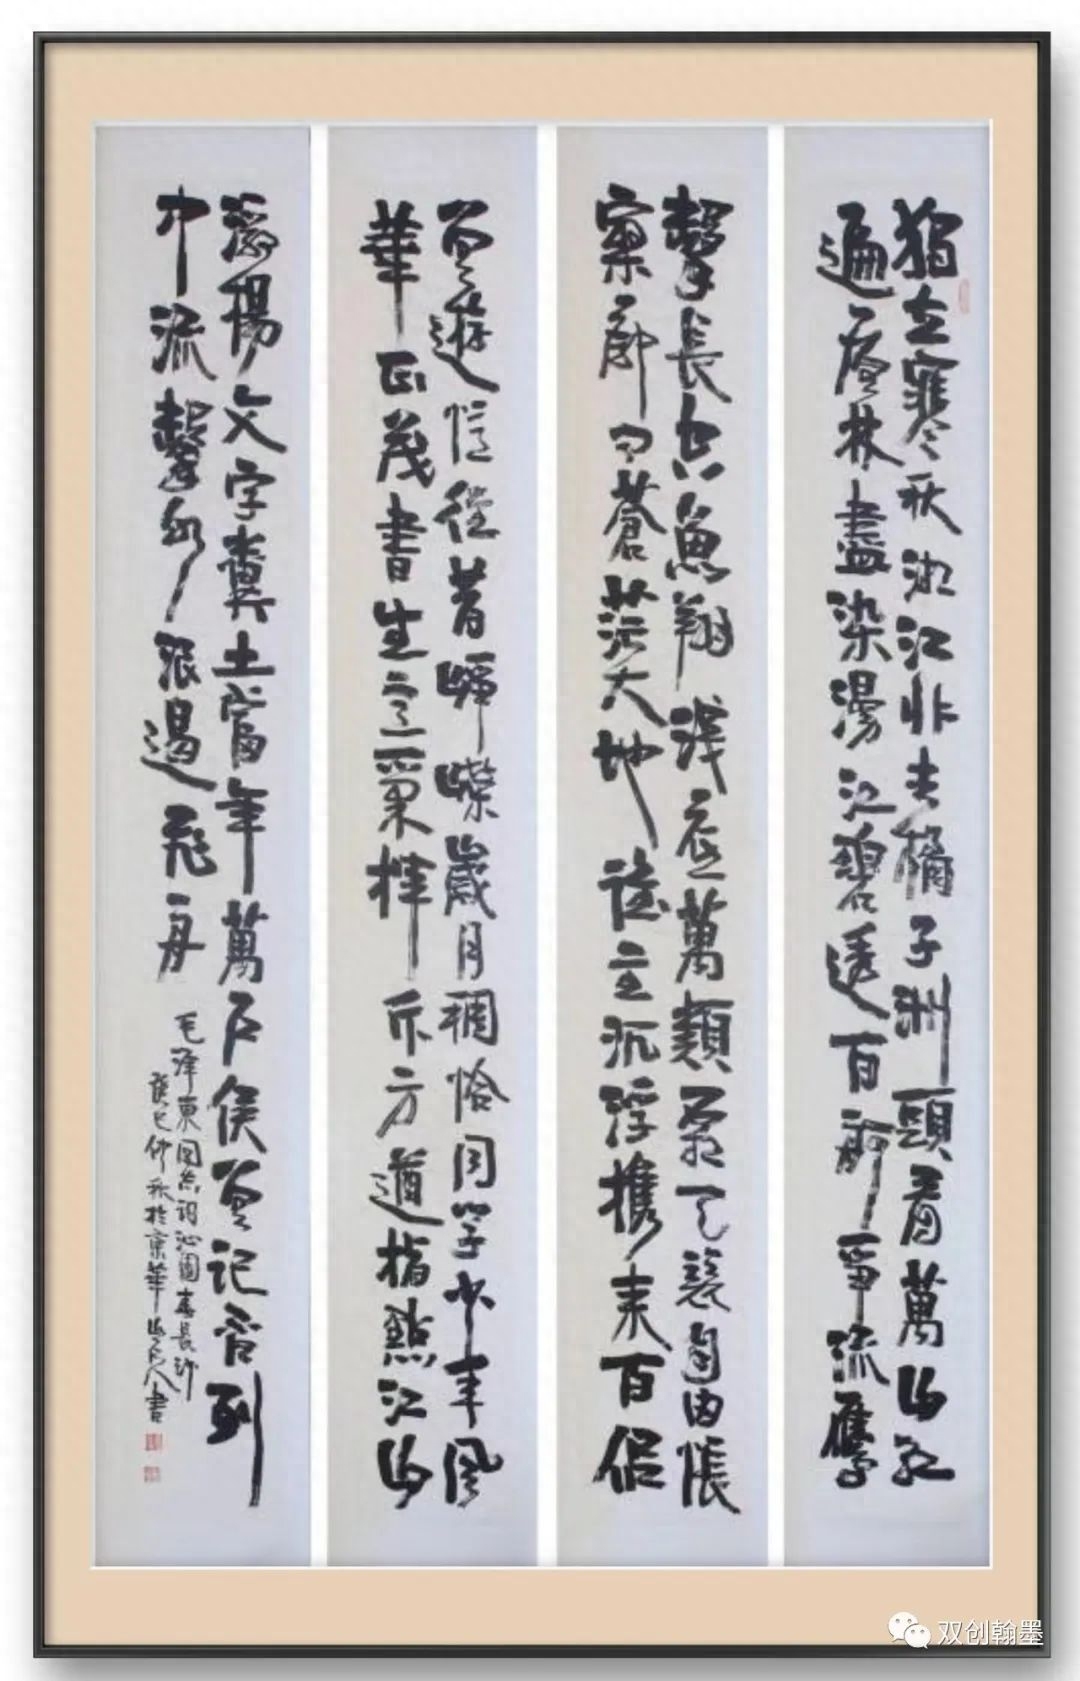 獨立寒秋湘江北去橘子洲頭看萬山紅
遍層林盡染漫江碧透百舸爭流鷹
擊長空魚翔淺底萬類霜天競自由悵
寥廓問蒼茫大地誰主沉浮攜來百侶
曾遊憶往昔崢嶸歲月稠恰同學少年風
華正茂書生意氣揮斥方遒指點江山
激揚文字糞土當年萬戶侯曾記否到
中流擊水浪遏飛舟
毛澤東同志詞沁園春長沙
癸巳仲秋於京華書
双创翰墨